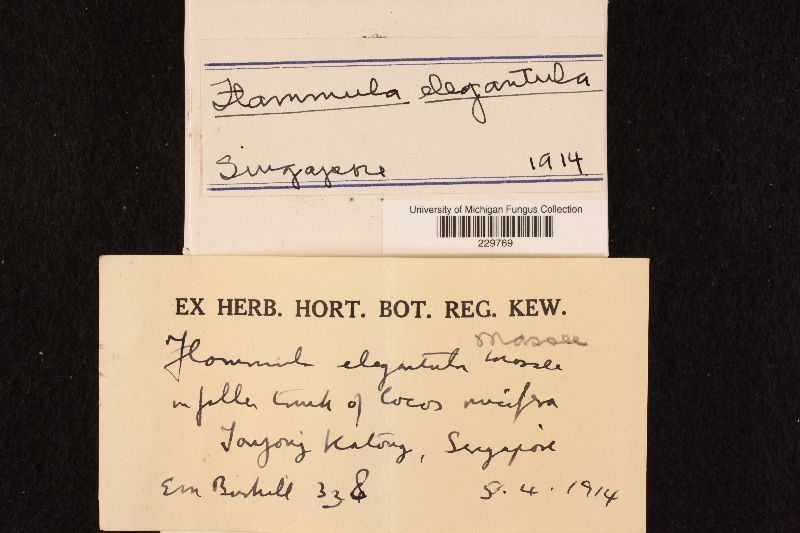 Flammula elegantula
Singapore 1914
University of Michigan Fungus Collection
229769
EX HERB. HORT. BOT. REG. KEW.
Massee
Flammula elegantula Massee
on fallen trunk of Cocos nucifera
Tanjong Katong, Singapore
Em Burkill 338 8.4.1914